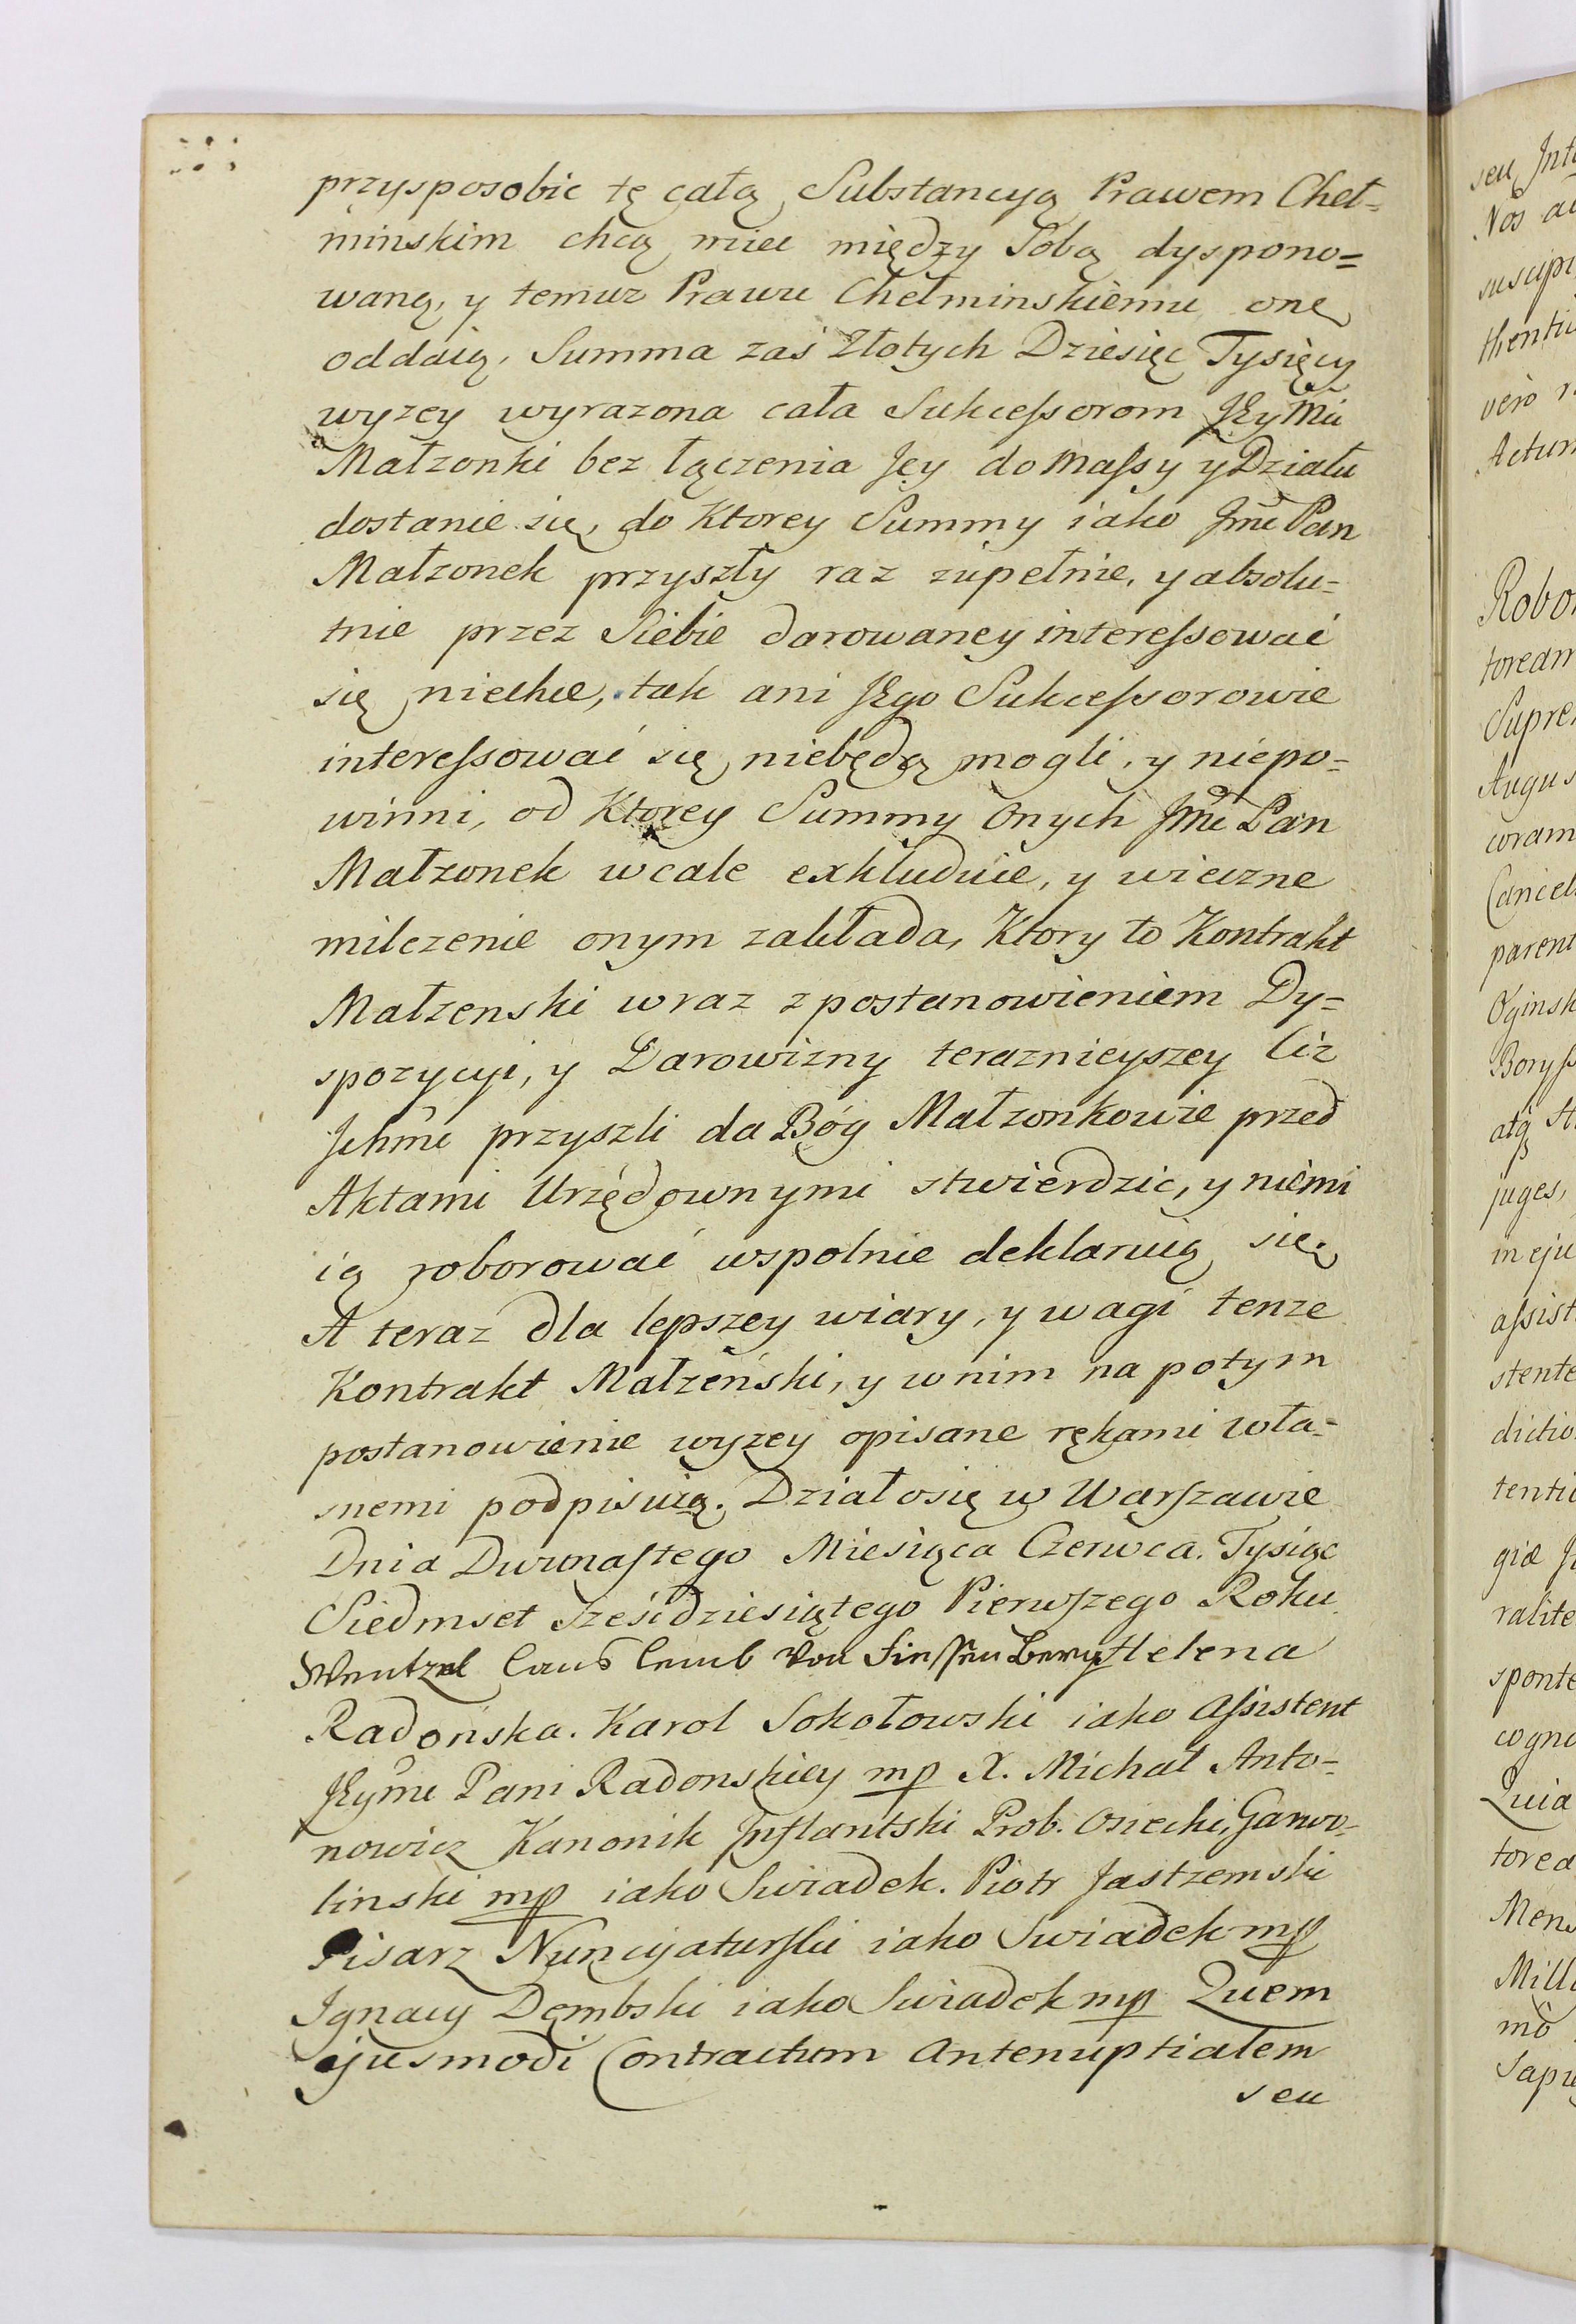 przysposobic tę całą Substancyą Prawem Cheł=
minskim chcą miec między Sobą dyspono=
waną, y temuz Prawu Chełminskiemu onę
oddaią. Summa zaś Złotych Dziesięc Tysięcy
wyzey wyrazona cała Sukceſsorom JEyMci
Małzonki bez łączenia Jey do Maſsy y Działu
dostanie się, do Ktorey Summy iako Jmć Pan
Małzonek przyszły raz zupełnie, y absolu=
tnie przez Siebie darowaney intereſsować
się niechce, tak ani JEgo Sukceſsorowie
intereſsować się niebędą mogli, y niepo=
winni, od Ktorey Summy Onych Jmć Pan
Małzonek wcale exkluduie, y wieczne
milczenie onym zakłada, Ktory to Kontrakt
Małzenski wraz z postanowieniem Dy=
spozycyi, y Darowizny teraznieyszey Ciz
Jchmć przyszli da Bóg Małzonkowie przed
Aktami Urzędownymi stwierdzic, y niemi
ią roborować wspolnie deklaruią się.
A teraz dla lepszey wiary, y wagi tenze
Kontrakt Małzeński, y w nim na potym
postanowienie wyzey opisane rękami wła=
snemi podpisuią. Działo się w Warſzawie
Dnia Dwunaſtego Miesiąca Czerwca. Tysiąc
Siedmset Sześćdziesiątego Pierwſzego Roku
Wentzel von Helena
Radońska. Karol Sokołowski iako Aſsistent
JEymć Pani Radonskiey mp X. Michał Anto=
nowicz Kanonik Jnflantski Prob. Osiecki, Garwo=
linski mp iako Swiadek. Piotr Jastzemski
Pisarz Nuncyaturſki iako Swiadek mp
Ignacy Dembski iako Swiadek mp Quem
ejusmodi Contractum Antenuptialem
seu
seu
Nos
thentic
vero
Actum
Robo
toream
Supre
Augus
coram
Cancel
parent
Oginsk
juges,
in eju
aſsist
stente
dictio
tenti
giæ
ralite
sponte
cogno
Quia
torea
Mens
Mill
mo
Sapie